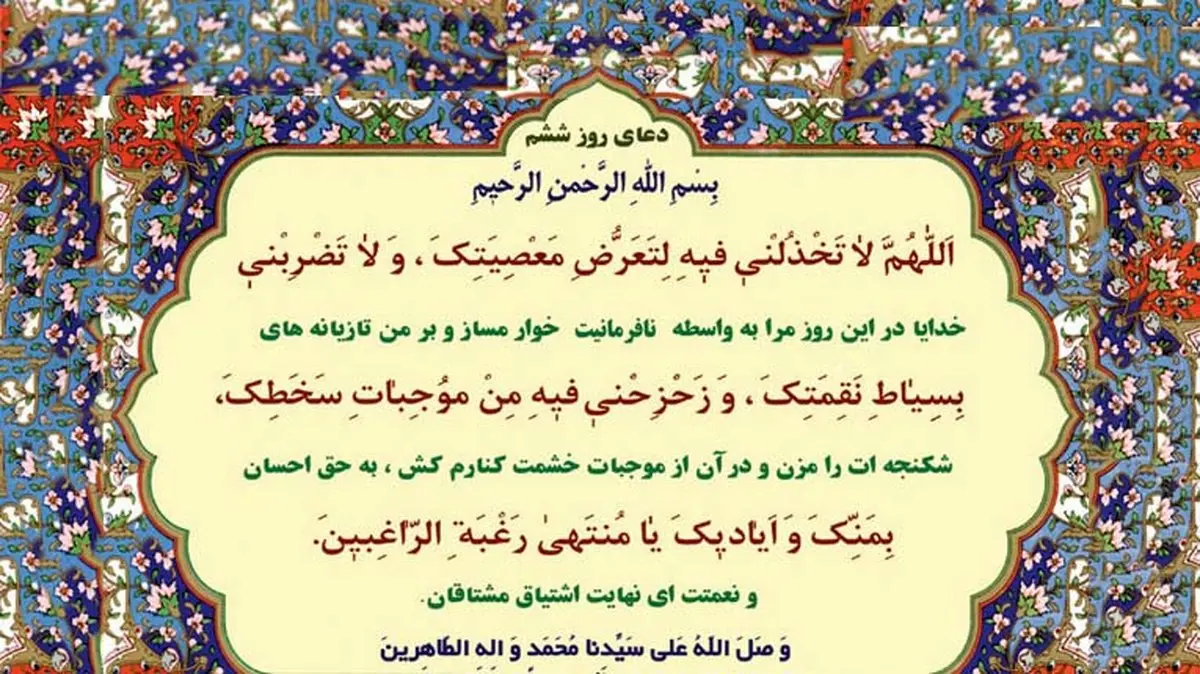 دعای روز ششم
بِسْمِ اللهِ الرَّحْمنِ الرَّحیٖمِ
اَللّٰهُمَّ لاٰ تَخْذُلْنیٖ فیٖهِ لِتَعَرُّضِ مَعْصِیَتِکَ ، وَ لاٰ تَضْرِبْنیٖ
خدایا در این روز مرا به واسطه نافرمانیت خوار مساز و بر من تازیانه های
بِسِیٰاطِ نَقِمَتِکَ ، وَ زَحْزِحْنیٖ فیٖهِ مِنْ موُجِبٰاتِ سَخَطِکَ،
شکنجه ات را مزن و در آن از موجبات خشمت کنارم کش ، به حق احسان
بِمَنِّکَ وَ اَیٰادیٖکَ یٰا مُنتَهیٰ رَغْبَةِ الرّٰاغِبیٖنَ.
و نعمتت ای نهایت اشتیاق مشتاقان.
وَ صَلَ اللهُ عَلی سَیِّدِنا مُحَمَدٍ وَ الِهِ الطَاهِرِینَ